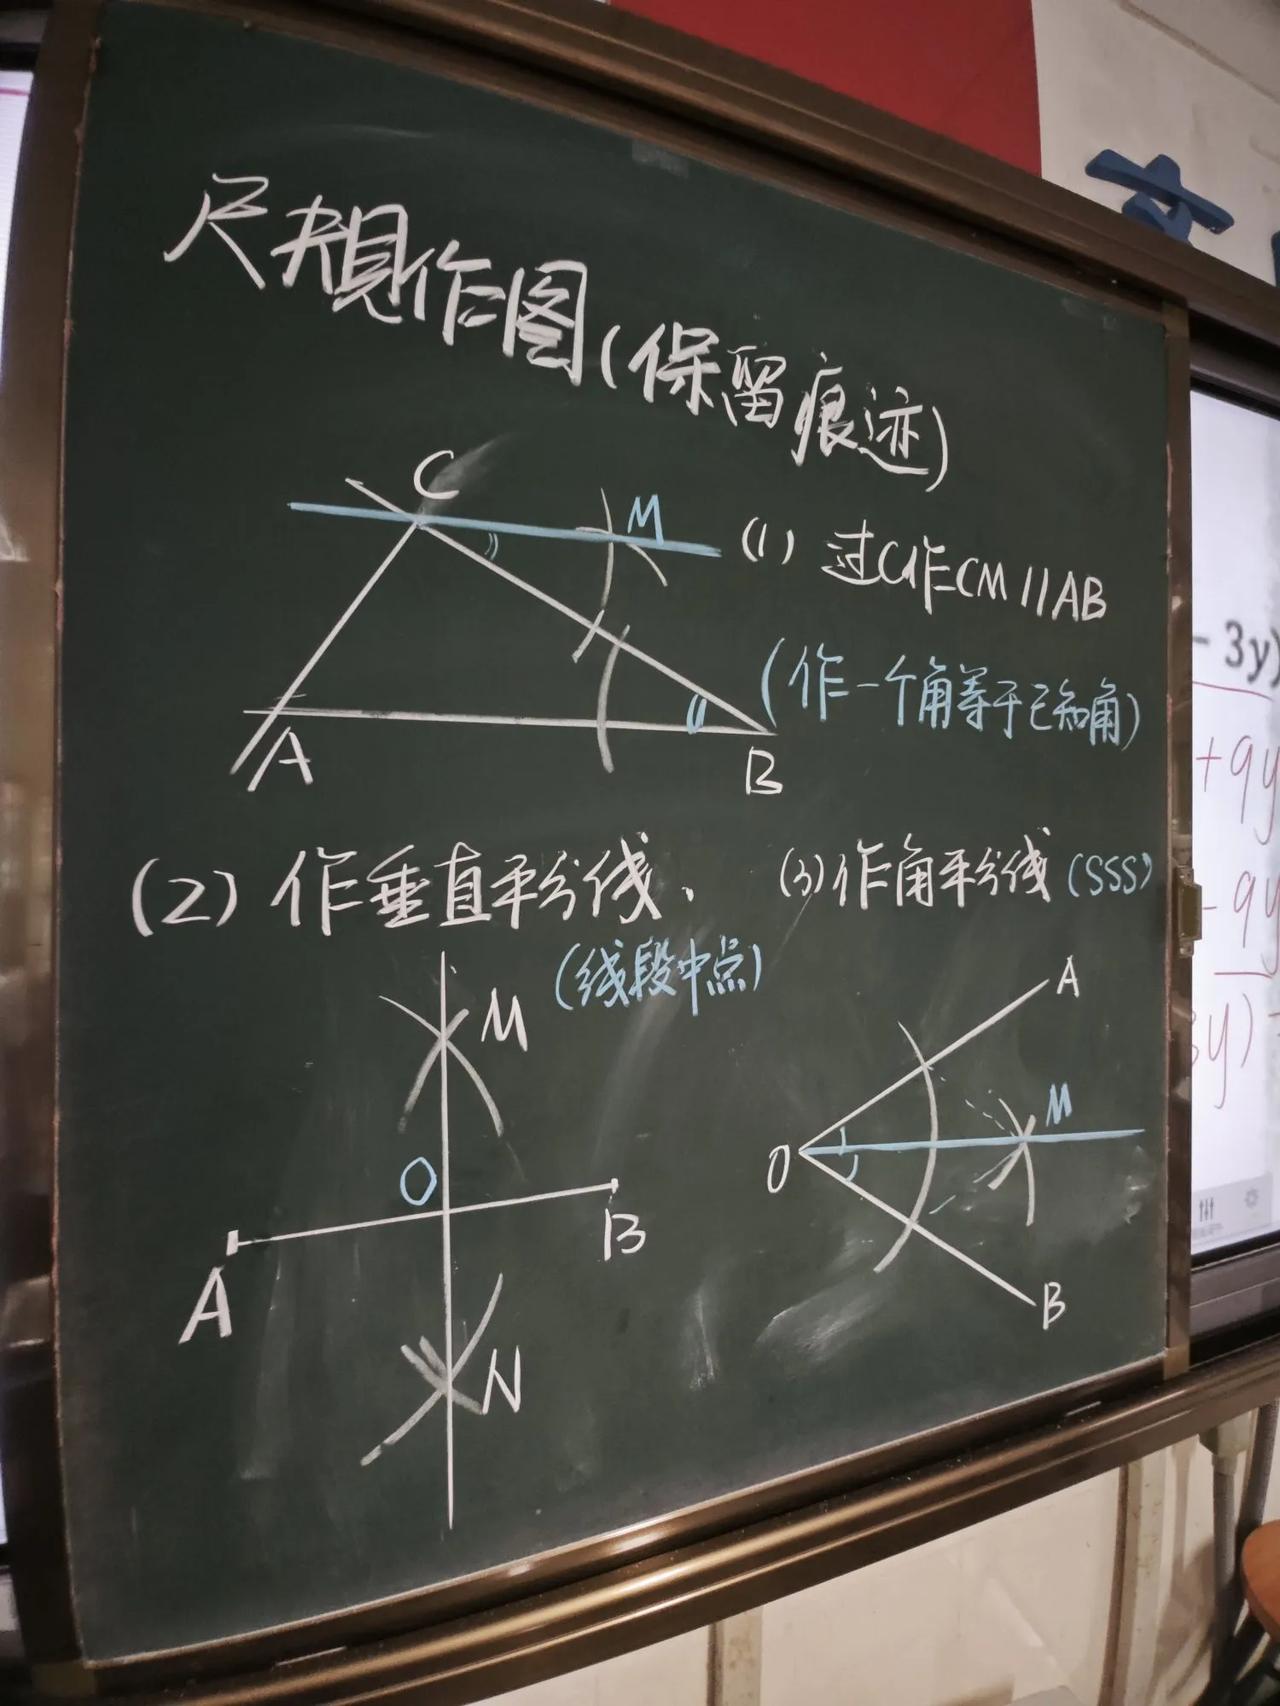 尺规作图(保留痕迹)
C
M
(1) 过C作CM//AB
(作一个角等于已知角)
A
B
(2) 作垂直平分线、
(线段中点)
M
O
A
B
N
(3) 作角平分线 (SSS)
A
M
O
B
- 3y)
+ 9y
- 9y
y)